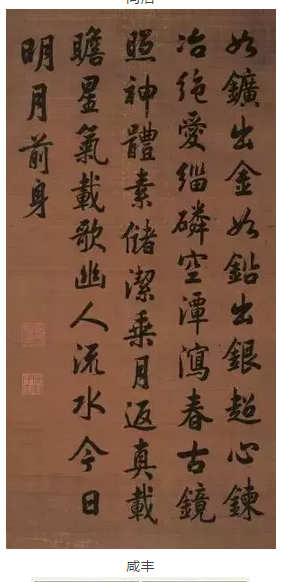 同治
如鑛出金如鉛出銀超心鍊
冶絶愛緇磷空潭瀉春古鏡
照神體素儲潔乗月返真載
瞻星氣載歌幽人流水今日
明月前身
咸丰